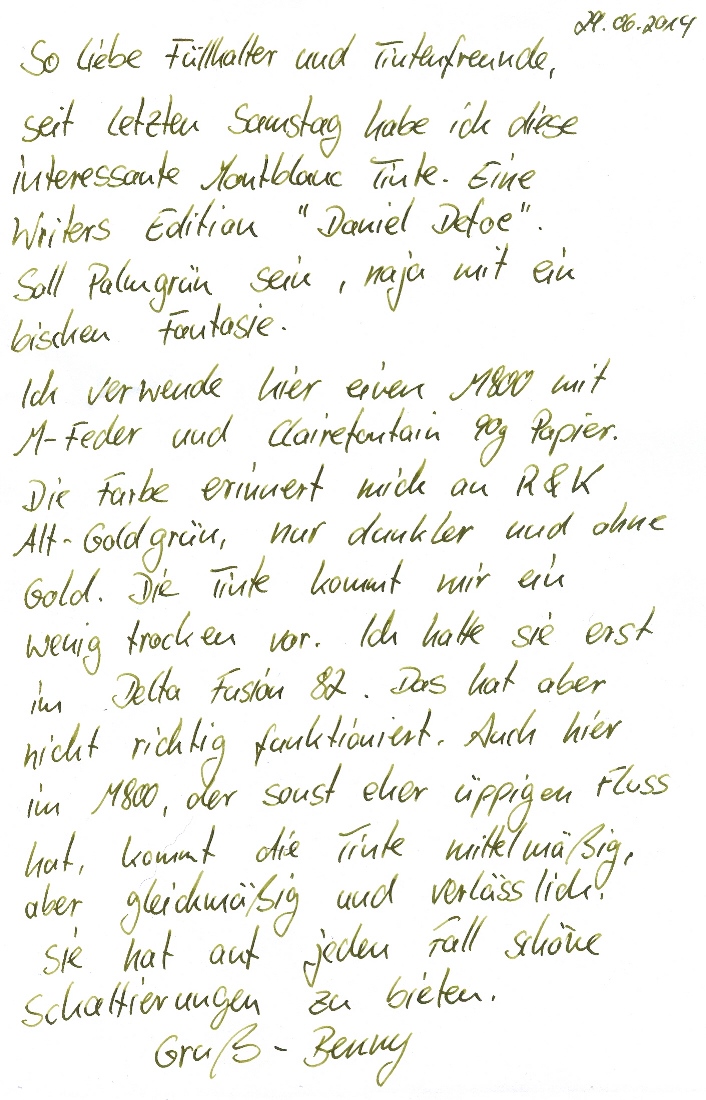 29.06.2014
So liebe Füllhalter und Tintenfreunde,
seit letzten Samstag habe ich diese
interessante Montblanc Tinte. Eine
Writers Edition "Daniel Defoe".
Soll Palmgrün sein, naja mit ein
bischen Fantasie.
Ich verwende hier einen M800 mit
M-Feder und Clairefontain 90g Papier.
Die Farbe erinnert mich an R&K
Alt-Goldgrün, nur dunkler und ohne
Gold. Die Tinte kommt mir ein
wenig trocken vor. Ich hatte sie erst
im Delta Fusion 82. Das hat aber
nicht richtig funktioniert. Auch hier
im M800, der sonst eher üppigen Fluss
hat, kommt die Tinte mittelmäßig,
aber gleichmäßig und verlässlich.
Sie hat auf jeden Fall schöne
Schattierungen zu bieten.
Gruß - Benny